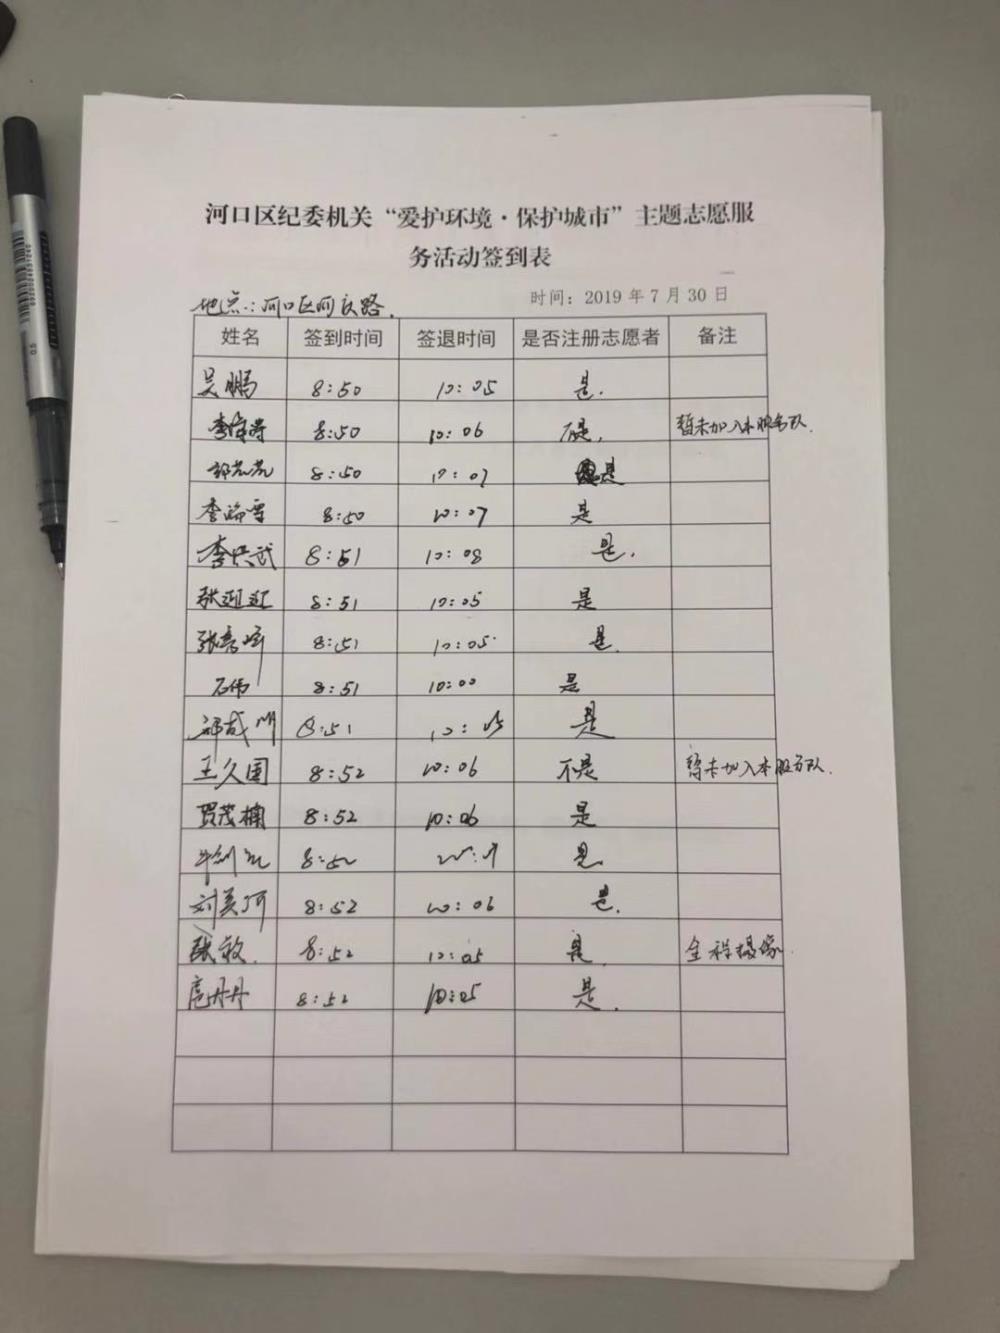 河口区纪委机关“爱护环境·保护城市”主题志愿服
务活动签到表
时间：2019 年 7 月 30 日
地点：河口区河庆路.
姓名 签到时间 签退时间 是否注册志愿者 备注
吴鹏 8:50 10:05 是.
8:50 10:06 不是. 暂未加入本服务队.
郭芳芳 8:50 10:07 是
李瑞雪 8:50 10:07 是
李洪武 8:51 10:08 是.
张迎红 8:51 10:05 是
8:51 10:05 是.
石伟 8:51 10:00 是
8:51 10:05 是
王久国 8:52 10:06 不是 暂未加入本服务队.
贾茂楠 8:52 10:06 是
8:52 是
刘美河 8:52 10:06 是.
张敏. 8:52 10:05 是. 全程摄像.
扈丹丹 8:52 10:05 是.